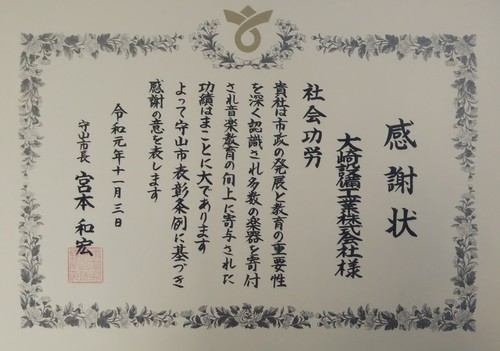 感謝状
大崎設備工業株式会社様
社会功労
貴社は市政の発展と教育の重要性
を深く認識され多数の楽器を寄付
され音楽教育の向上に寄与された
功績はまことに大であります
よって守山市表彰条例に基づき
感謝の意を表します
令和元年十一月三日
守山市長 宮本和宏